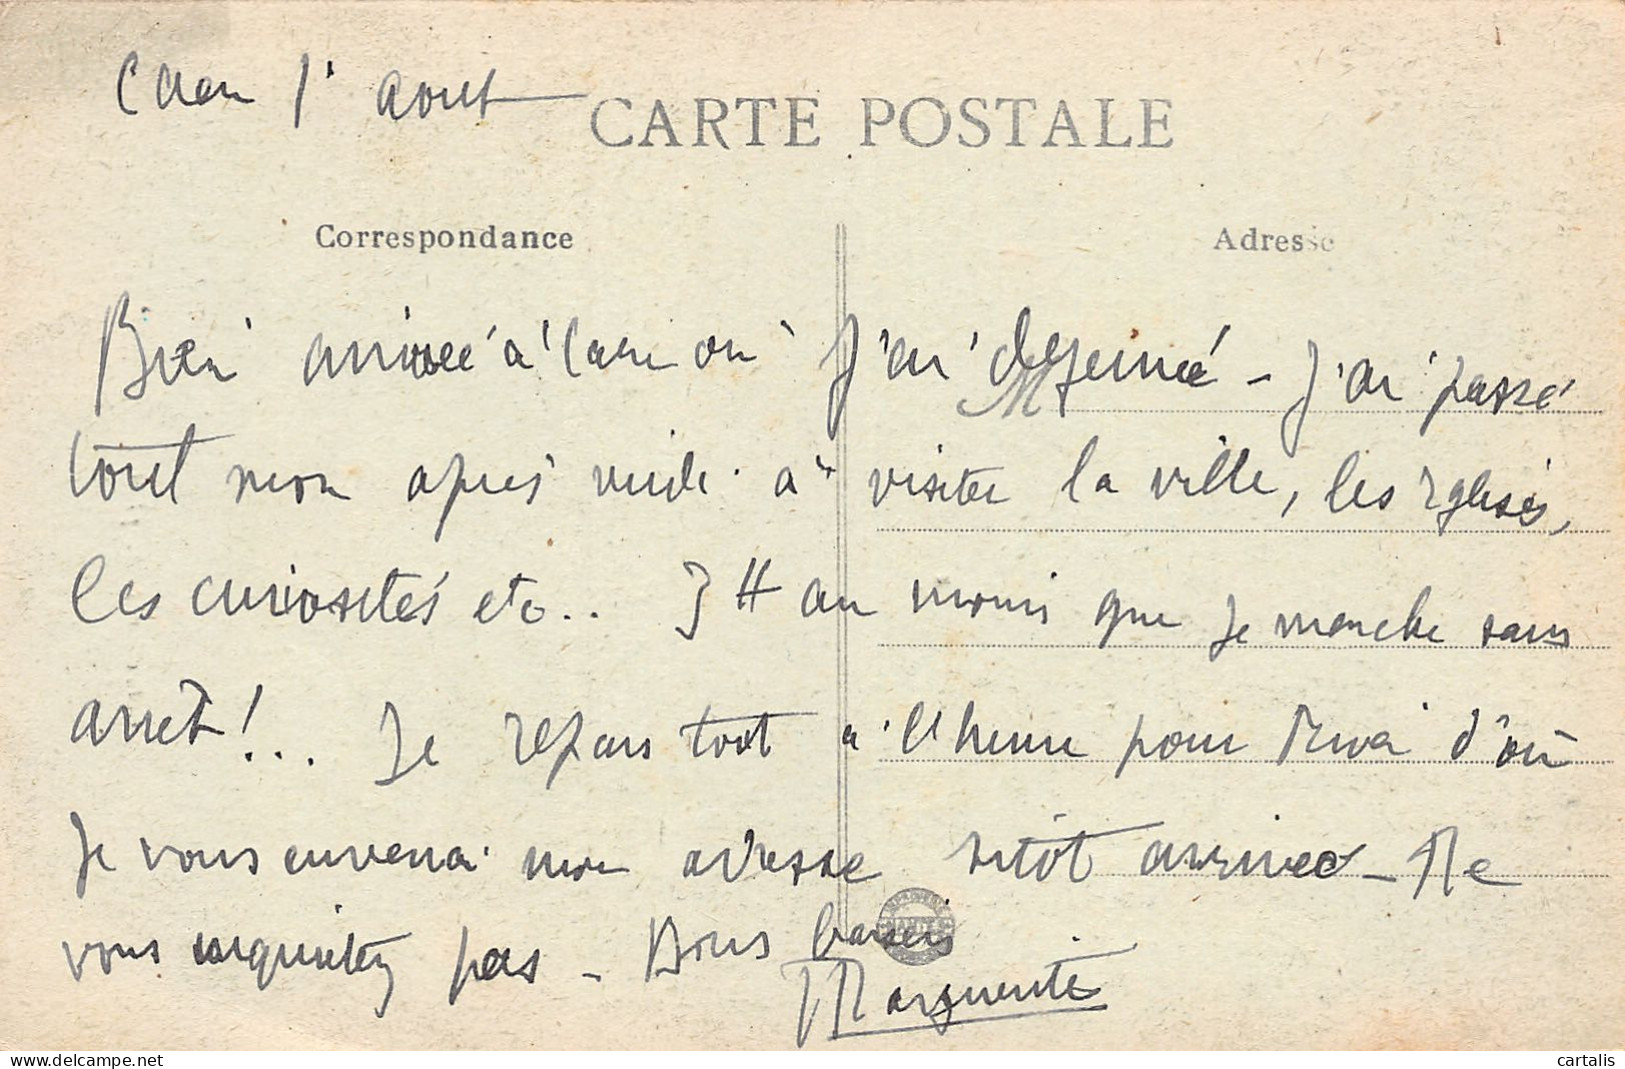 Caen 1r aout
CARTE POSTALE
Correspondance
Adresse
Bien arrivée à Caen où j'ai déjeuné - J'ai passé
tout mon après midi à visiter la ville, les églises,
les curiosités etc.. 3 H au moins que je marche sans
arret!... Je repars tout à l'heure pour d'où
je vous enverrai mon adresse sitôt arrivée - Ne
vous inquietez pas - Bons baisers
Marguerite
cartalis